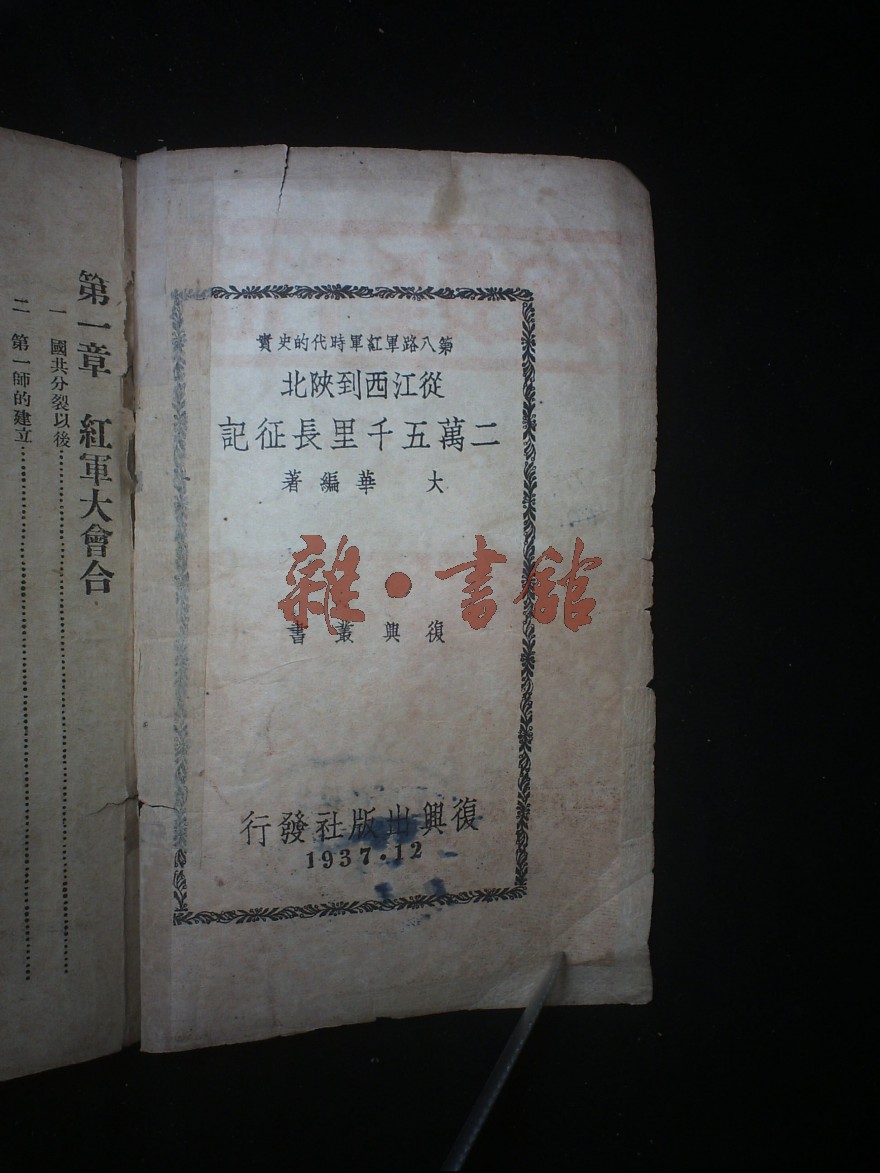 第八路軍紅軍時代的史實
從江西到陝北
二萬五千里長征記
大華編著
雜·書館
復興叢書
復興出版社發行
1937.12
第一章 紅軍大會合
一 國共分裂以後
二 第一師的建立